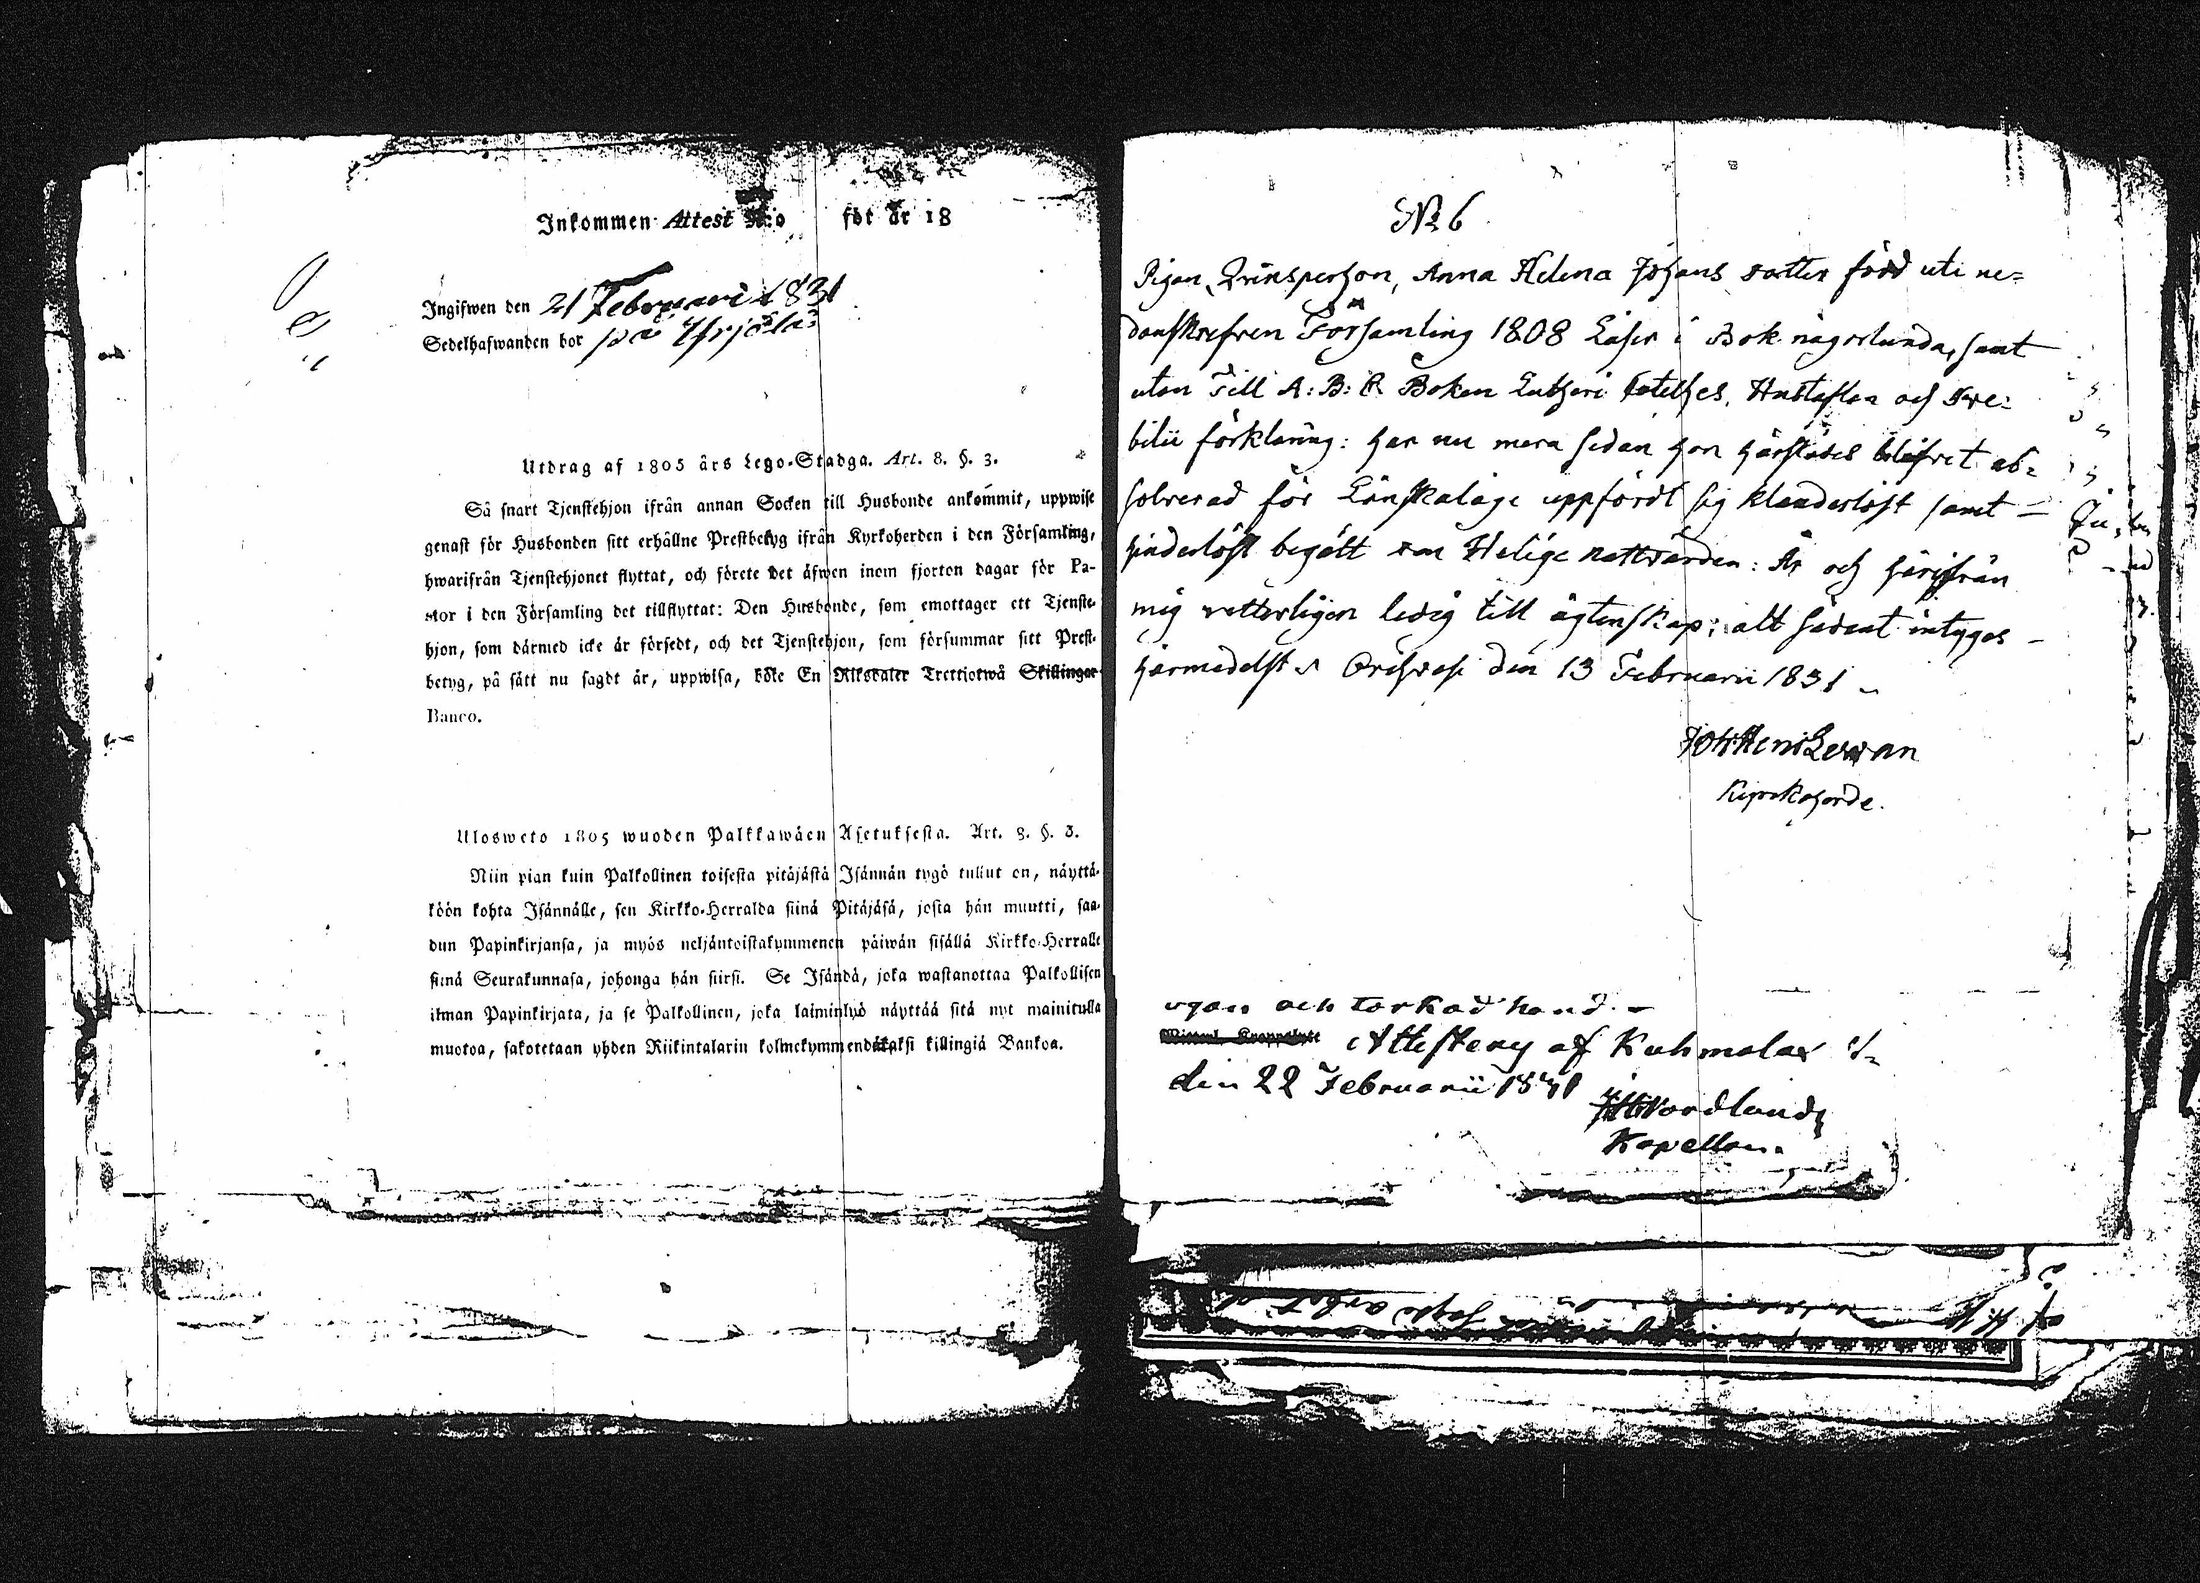 Inkommen Attest N:o föt år 18
Ingifwen den 21 Februari 1831
Sedelhafwanden bor på
Utdrag af 1805 års Lego-Stadga. Art. 8. §. 3.
Så snart Tjenstehjon ifrån annan Socken till Husbonde ankommit, uppwise
genast för Husbonden sitt erhållne Prestbetyg ifrån Kyrkoherden i den Församling,
hwarifrån Tjenstehjonet flyttat, och förete det äfwen inom fjorton dagar för Pa-
stor i den Församling det tillflyttat: Den Husbonde, som emottager ett Tjenste-
hjon, som därmed icke är försedt, och det Tjenstehjon, som försummar sitt Prest-
betyg, på sätt nu sagdt är, uppwisa, böte En Riksdaler Trettiotwå Skillingar
Banco.
Ulosweto 1805 wuoden Palkkawäen Asetuksesta. Art. 8. §. 3.
Niin pian kuin Palkollinen toisesta pitäjästä Isännän tygö tullut on, näyttä-
köön kohta Isännälle, sen Kirkko-Herralda siinä Pitäjäsä, josta hän muutti, saa-
dun Papinkirjansa, ja myös neljäntoistakymmenen päiwän sisällä Kirkko-Herralle
siinä Seurakunnasa, johonga hän siirsi. Se Isändä, joka wastanottaa Palkollisen
ilman Papinkirjata, ja se Palkollinen, joka laiminlyö näyttää sitä nyt mainitulla
muotoa, sakotetaan yhden Riikintalarin kolmekymmendäkaksi killingiä Bankoa.
N:o 6
Pigan, Qvinsperson, Anna Helena Johans dotter född uti ne=
danskrefven Församling 1808 Läser i Bok någorlunda, samt
utan till A:B:C Boken Lutheri Cateches, Hustaflan och Sve=
bilii förklaring: har nu mera sedan hon härstädes blifvit ab=
solverad för Lönskaläge uppfördt sig klanderlöst samt
hinderlöst begått den Helige nattvarden: Är och härifrån
mig vetterligen ledig till ägtenskap; alt sådant intygas
härmedelst Orihvesi den 13 Februarii 1831
Kyrkoherde.
ögon och torkad hand.
Attesteras af Kuhmalax
den 22 Februarii 1831
Nordlund
Kapellan.